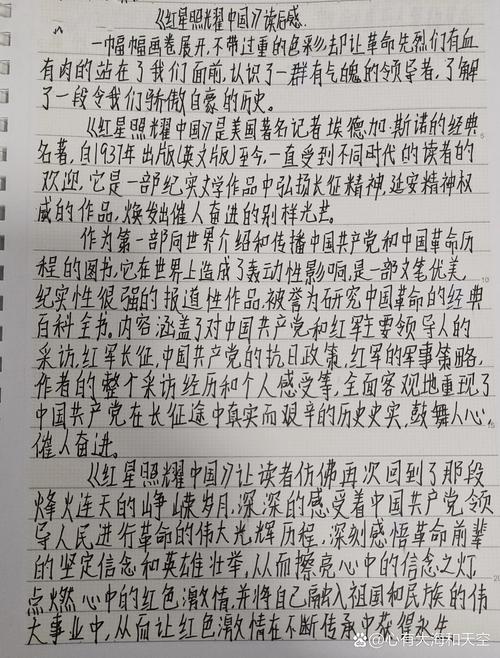 《红星照耀中国》读后感.
一幅幅画卷展开,不带过重的色彩,却让革命先烈们有血
有肉的站在了我们面前,认识了一群有气魄的领导者,了解
了一段令我们骄傲自豪的历史。
《红星照耀中国》是美国著名记者埃德加·斯诺的经典
名著,自1937年出版(英文版)至今,一直受到不同时代的读者的
欢迎,它是一部纪实文学作品中弘扬长征精神,延安精神权
威的作品,焕发出催人奋进的别样光芒。
作为第一部向世界介绍和传播中国共产党和中国革命历
程的图书,它在世界上造成了轰动性影响,是一部文笔优美
纪实性很强的报道性作品,被誉为研究中国革命的经典
10
百科全书。内容涵盖了对中国共产党和红军主要领导人的
采访,红军长征,中国共产党的抗日政策,红军的军事策略,
作者的整个采访经历和个人感受等,全面客观地重现了
中国共产党在长征途中真实而艰辛的历史史实,鼓舞人心,
催人奋进。
《红星照耀中国》让读者仿佛再次回到了那段
烽火连天的峥嵘岁月,深深的感受着中国共产党领
导人民进行革命的伟大光辉历程,深刻感悟革命前辈
的坚定信念和英雄壮举,从而擦亮心中的信念之灯,
20
点燃心中的红色激情,并将自己融入祖国和民族的伟
大事业中,从而让红色激情在不断传承中获得永生
@心有大海和天空